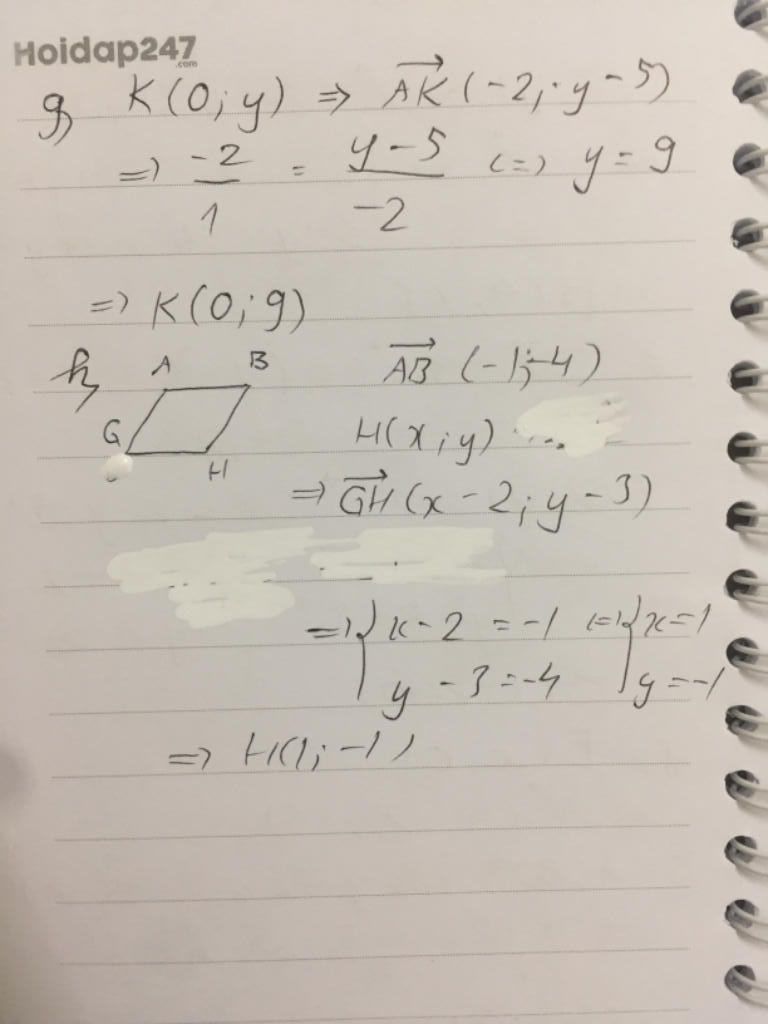 Hoidap247
.com
g) K(0;y) => \overrightarrow{AK} (-2; y-5)
=> \frac{-2}{1} = \frac{y-5}{-2} <=> y = 9
=> K(0;9)
h) A B \overrightarrow{AB} (-1;-4)
G H H(x;y)
=> \overrightarrow{GH} (x-2; y-3)
=> { x-2 = -1 <=> { x=1
y-3 = -4 y=-1
=> H(1;-1)